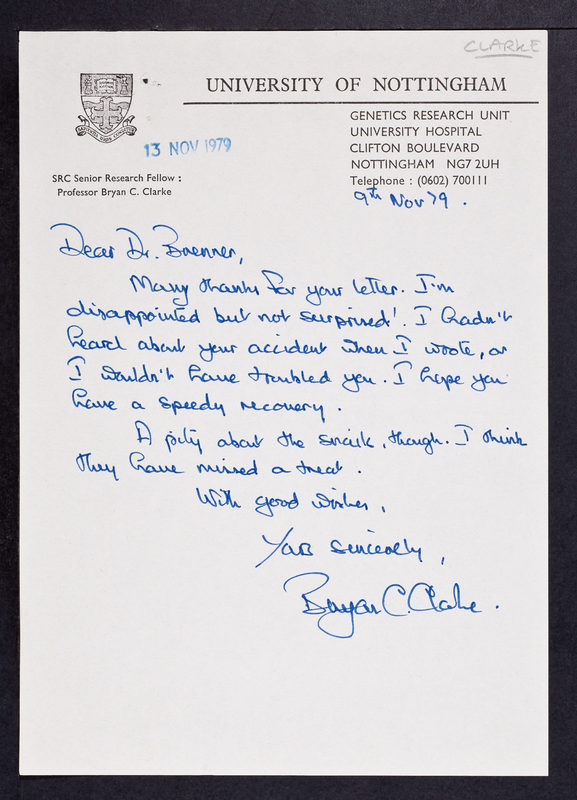 CLARKE
UNIVERSITY OF NOTTINGHAM
GENETICS RESEARCH UNIT
UNIVERSITY HOSPITAL
CLIFTON BOULEVARD
NOTTINGHAM NG7 2UH
Telephone : (0602) 700111
13 NOV 1979
SRC Senior Research Fellow :
Professor Bryan C. Clarke
9th Nov 79.
Dear Dr. Brenner,
Many thanks for your letter. I'm
disappointed but not surprised! I hadn't
heard about your accident when I wrote, or
I wouldn't have troubled you. I hope you
have a speedy recovery.
A pity about the snails, though. I think
they have missed a treat.
With good wishes,
Yours sincerely,
Bryan C. Clarke.